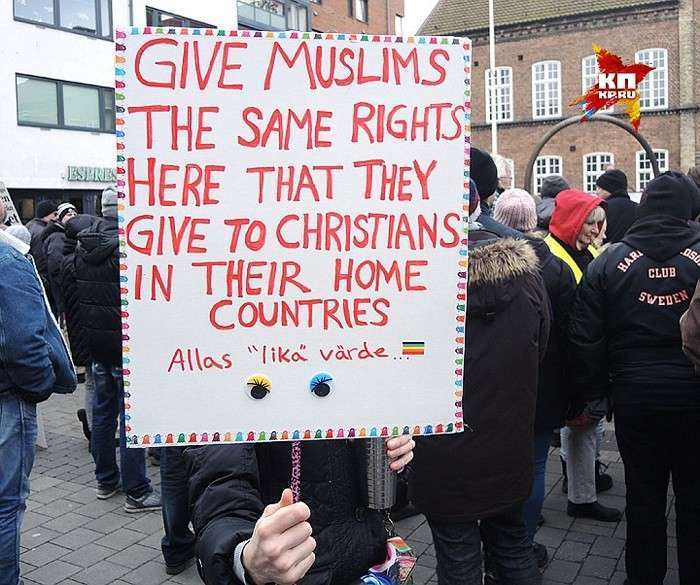 GIVE MUSLIMS
THE SAME RIGHTS
HERE THAT THEY
GIVE TO CHRISTIANS
IN THEIR HOME
COUNTRIES
Allas "lika" värde...
КП
KP.RU
CLUB
SWEDEN